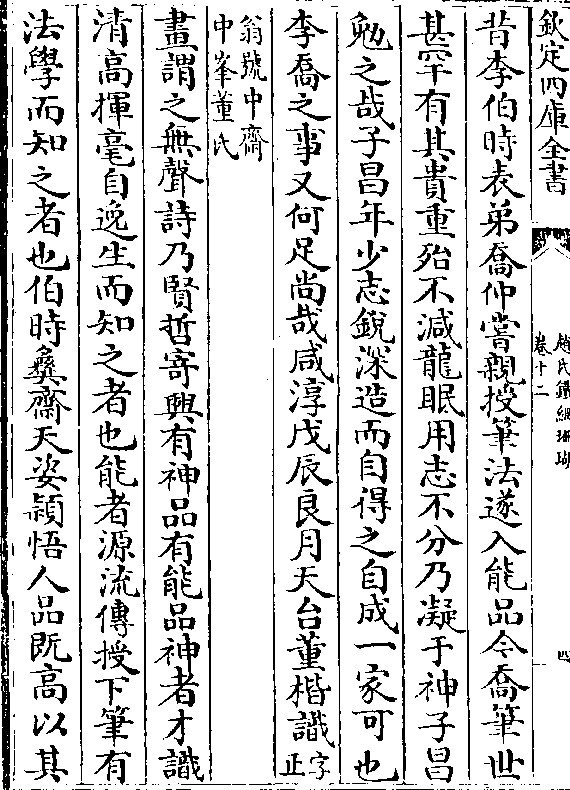 欽定四庫全書
趙氏鐵網珊瑚
卷十二
四
昔李伯時表弟喬仲嘗親授筆法遂入能品今喬筆世
甚罕有其貴重殆不減龍眠用志不分乃凝于神子昌
勉之哉子昌年少志銳深造而自得之自成一家可也
李喬之事又何足尚哉咸淳戊辰良月天台董楷識
正字
翁號中齋
中峯董氏
畫謂之無聲詩乃賢哲寄興有神品有能品神者才識
清高揮毫自逸生而知之者也能者源流傳授下筆有
法學而知之者也伯時彝齋天姿穎悟人品既高以其